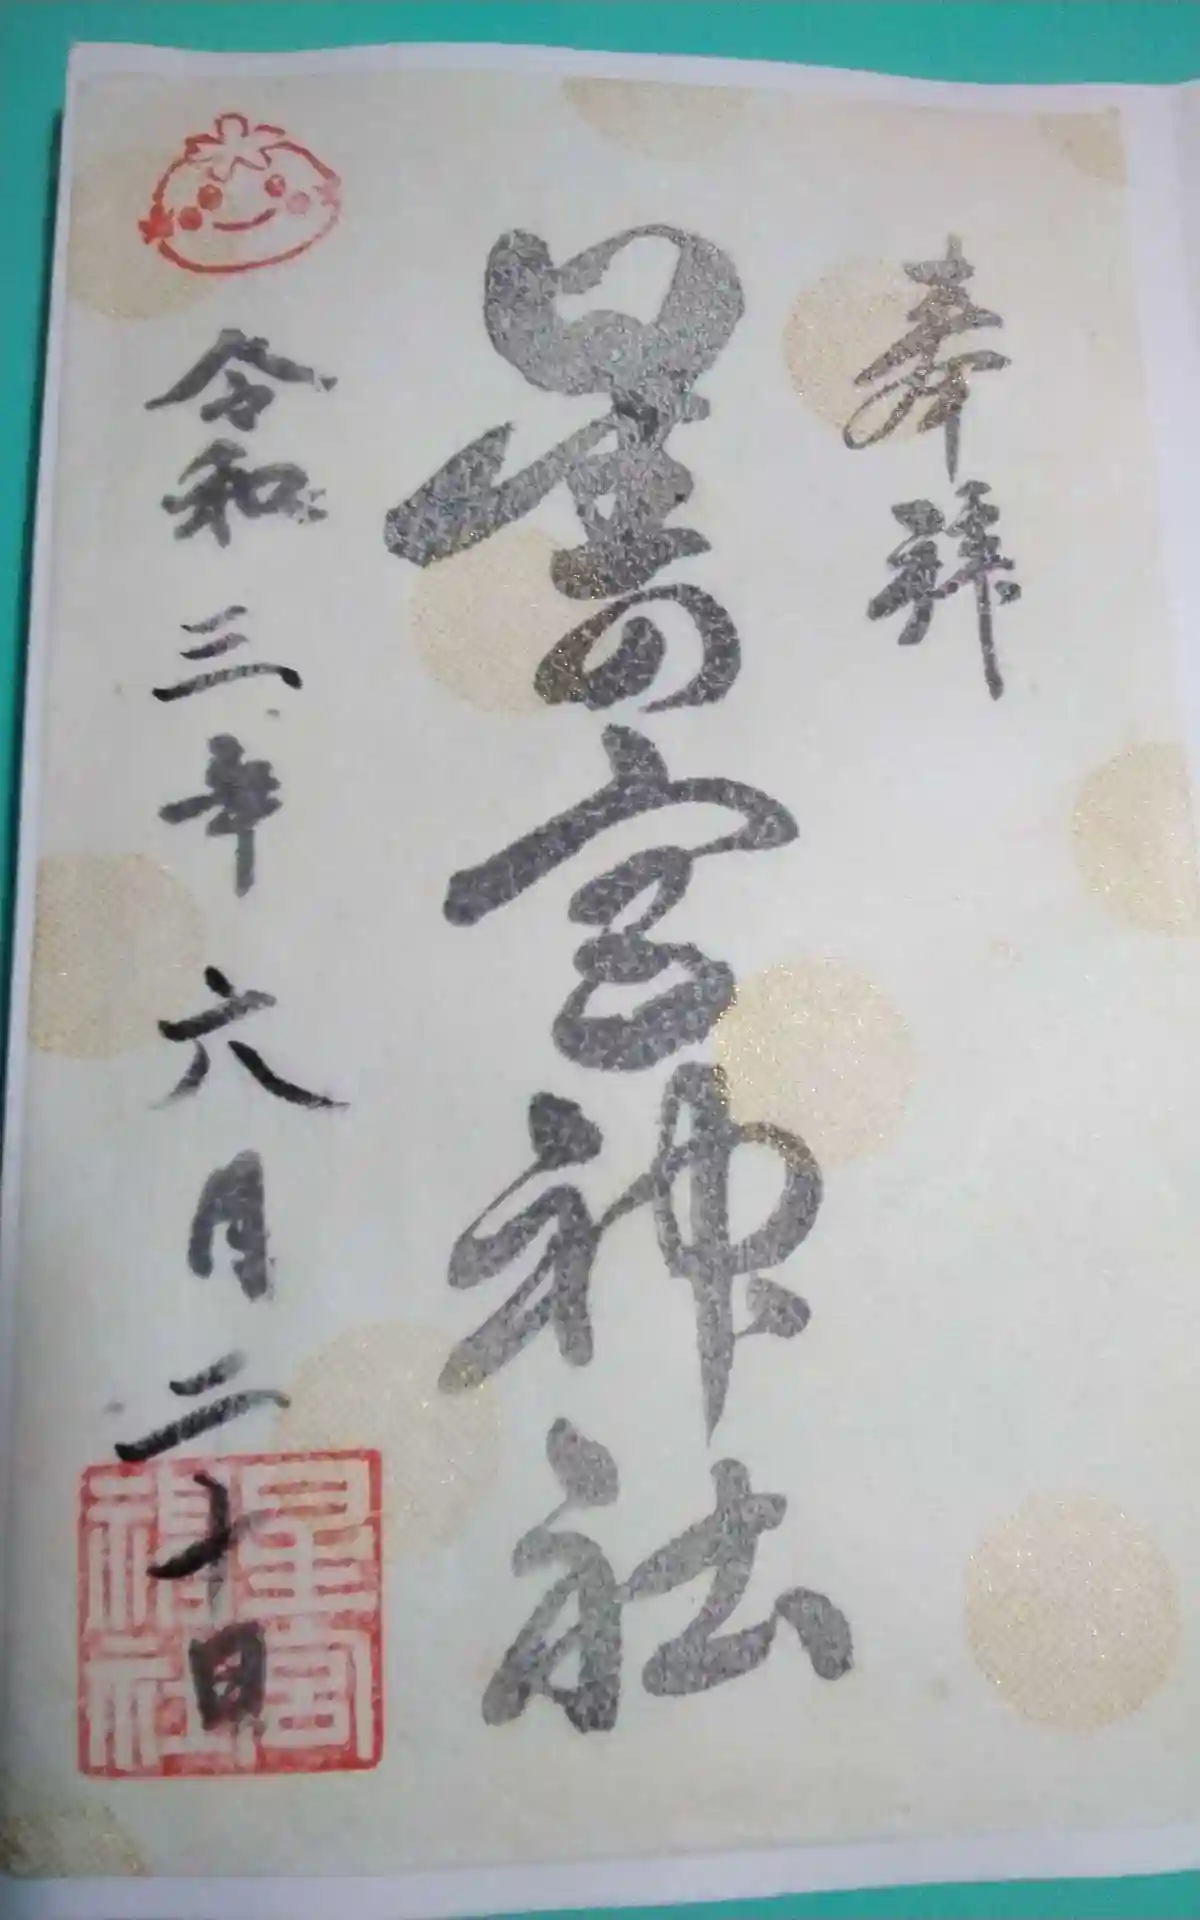 奉拝
星の宮神社
令和三年六月二十日
星宮
神社